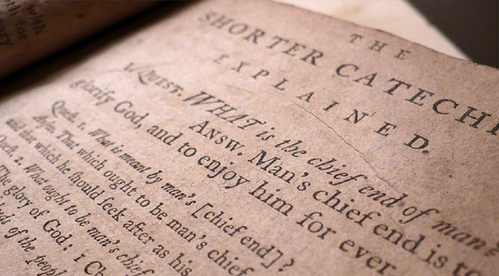 THE
SHORTER CATECHI
EXPLAINED.
1. QUEST. WHAT is the chief end of man?
Answ. Man's chief end is to
glorify God, and to enjoy him for ever
Quest. 1. What is meant by man's [chief end]?
Answ. That which ought to be man's chief
that which he should seek after as his
Quest. 2. What ought to be man's chief
The glory of God; 1 C
of the people